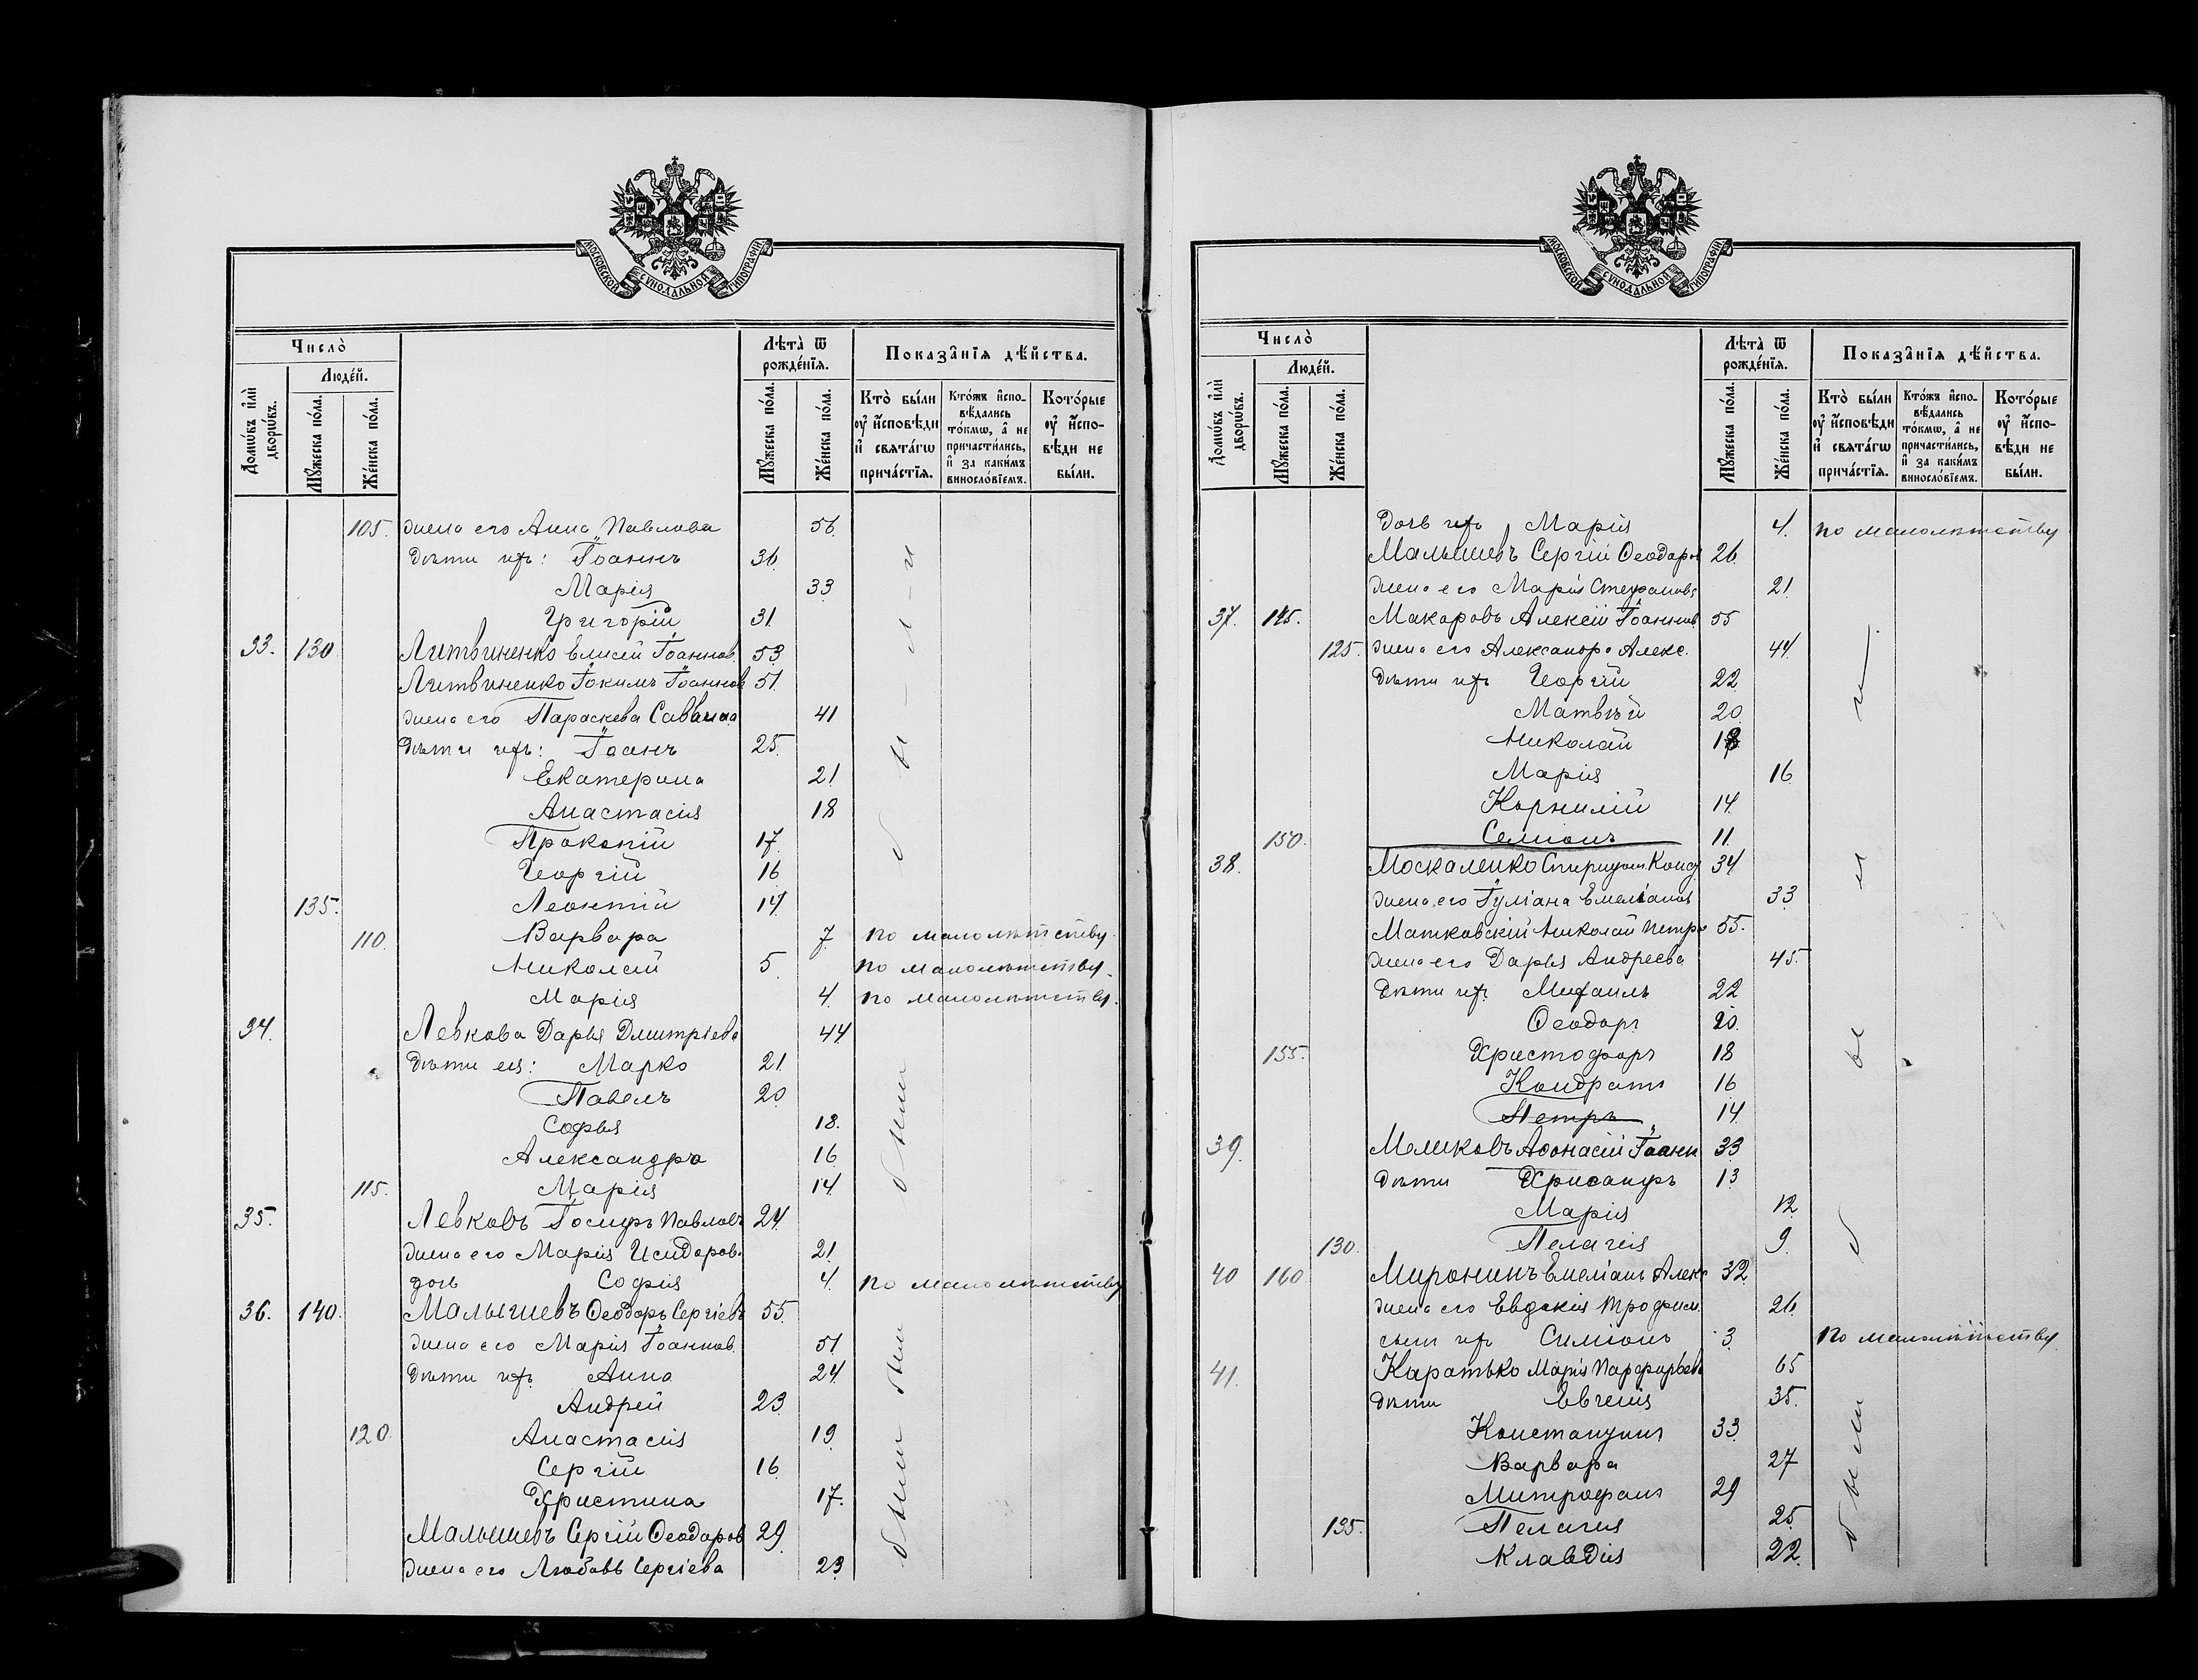 МОСКОВСКОЙ СѴНОДАЛЬНОЙ ТИПОГРАФІИ
Число̀
Людéй.
Домѡ́въ и҆лѝ дворѡ́въ.
Мꙋ́жеска по́ла.
Же́нска по́ла.
Лѣта̀ ѿ рожде́нїѧ.
Мꙋ́жеска по́ла.
Же́нска по́ла.
Показа̑нїѧ дѣ́йства.
Кто̀ бы́ли ᲂу҆ и҆сповѣди и҆ свѧта́гѡ прича́стїѧ.
Кто́жъ и҆сповѣ́дались то́кмѡ, а҆ не причасти́лись, и҆ за каки́мъ винословїемъ.
Кото́рые ᲂу҆ и҆сповѣди не бы́ли.
105. жена его Анна Павлова 56.
дѣти ихъ: Іоаннъ 36.
Марія 33
Григорій 31.
33. 130. Литвиненко Елисей Іоаннов. 53
Литвиненко Іоакимъ Іоаннов 51.
жена его Параскева Саввина 41
дѣти ихъ: Іоанъ 25.
Екатерина 21
Анастасія 18
Прокопій 17.
Георгій 16
135. Леонтій 14.
110. Варвара 7. по малолѣтству.
Николай 5. по малолѣтству.
Марія 4. по малолѣтству.
были
34. Левкова Дарья Дмитріева 44
дѣти ея: Марко 21.
Павелъ 20.
Софья 18.
Александра 16.
115. Марія 14.
были
35. Левковъ Іосифъ Павловъ 24.
жена его Марія Исидоров. 21.
дочь Софія 4. по малолѣтству
36. 140. Малышевъ Ѳеодоръ Сергіевъ 55.
жена его Марія Іоаннов. 51.
дѣти ихъ Анна 24.
Андрей 23.
120. Анастасія 19.
Сергій 16.
Христина 17.
Малышевъ Сергій Ѳеодоров 29.
жена его Любовь Сергіева 23
были
МОСКОВСКОЙ СѴНОДАЛЬНОЙ ТИПОГРАФІИ
Число̀
Людéй.
Домѡ́въ и҆лѝ дворѡ́въ.
Мꙋ́жеска по́ла.
Же́нска по́ла.
Лѣта̀ ѿ рожде́нїѧ.
Мꙋ́жеска по́ла.
Же́нска по́ла.
Показа̑нїѧ дѣ́йства.
Кто̀ бы́ли ᲂу҆ и҆сповѣди и҆ свѧта́гѡ прича́стїѧ.
Кто́жъ и҆сповѣ́дались то́кмѡ, а҆ не причасти́лись, и҆ за каки́мъ винословїемъ.
Кото́рые ᲂу҆ и҆сповѣди не бы́ли.
дочь ихъ Марія 4. по малолѣтству
Малышевъ Сергій Ѳеодоров 26.
жена его Марія Стефанова 21.
37. 145. Макаровъ Алексій Іоаннов 55
125. жена его Александра Алекс. 44.
дѣти ихъ Георгій 22
Матвѣй 20.
Николай 18
Марія 16
Корнилій 14.
150. Семіонъ 11.
38. Москаленко Спиридон. Конд 34
жена его Іуліана Емеліанов 33.
Матковскій Николай Петро 55.
жена его Дарья Андреева 45.
дѣти ихъ Михаилъ 22
Ѳеодоръ 20.
155. Христофоръ 18
Кондратъ 16
Петръ 14.
39. Меликовъ Аѳонасій Іоанн 33
дѣти Хрисанфъ 13
Марія 12
130. Пелагея 9.
были
40 160 Миронинъ Емеліанъ Алекс 32
жена его Евдокія Трофим. 26.
сынъ ихъ Симіонъ 3. по малолѣтству
41. Каратько Марія Парфирьева 65
дѣти Евгенія 35.
Константинъ 33.
Варвара 27
Митрофанъ 29
135. Пелагія 25.
Клавдія 22.
были